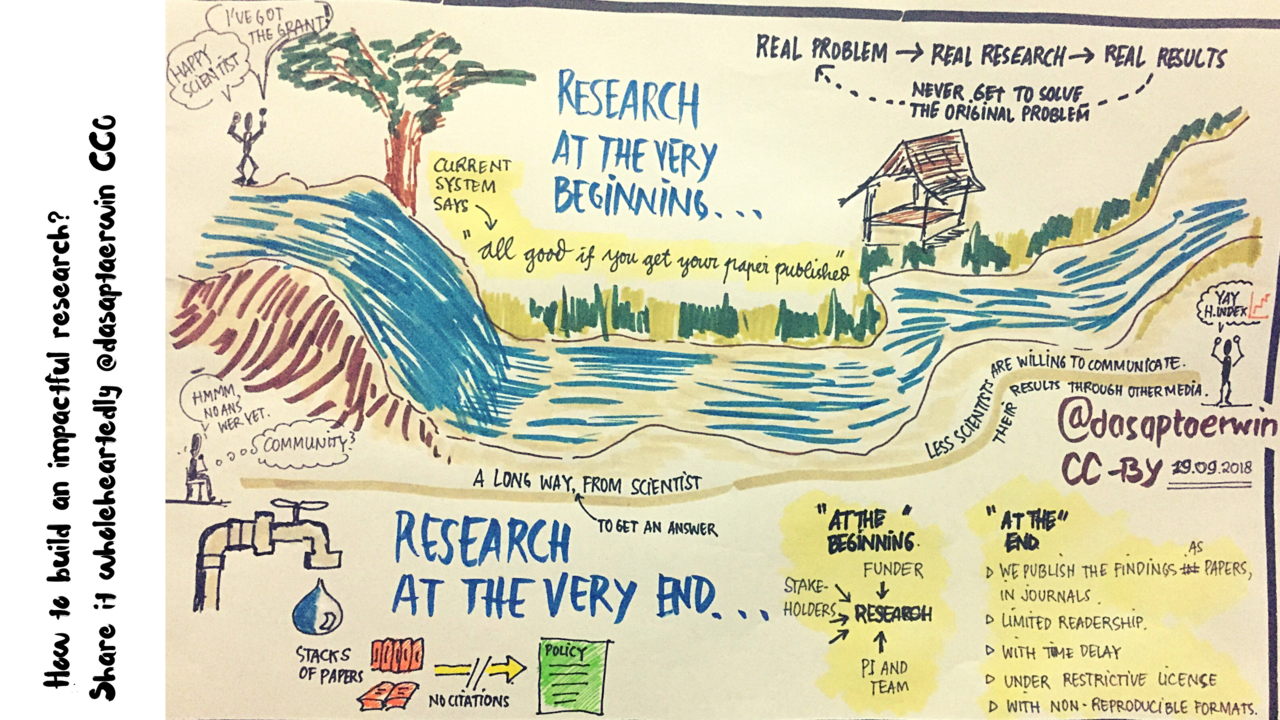 How to build an impactful research?
Share it wholeheartedly @dasaptaerwin CC0
I'VE GOT
THE GRANT!
HAPPY
SCIENTIST
RESEARCH
AT THE VERY
BEGINNING...
CURRENT
SYSTEM
SAYS
"all good if you get your paper published"
REAL PROBLEM → REAL RESEARCH → REAL RESULTS
NEVER GET TO SOLVE
THE ORIGINAL PROBLEM
YAY
H.INDEX
LESS SCIENTISTS ARE WILLING TO COMMUNICATE.
THEIR RESULTS THROUGH OTHER MEDIA.
@dasaptaerwin
CC-BY 19.09.2018
HMMM,
NO ANS
WER YET.
COMMUNITY?
A LONG WAY, FROM SCIENTIST
TO GET AN ANSWER
RESEARCH
AT THE VERY END...
STACKS
OF PAPERS
NO CITATIONS
POLICY
"AT THE"
BEGINNING.
FUNDER
STAKE-
HOLDERS
RESEARCH
PI AND
TEAM
"AT THE"
END
▷ WE PUBLISH THE FINDINGS AS PAPERS,
IN JOURNALS.
▷ LIMITED READERSHIP.
▷ WITH TIME DELAY
▷ UNDER RESTRICTIVE LICENSE
▷ WITH NON-REPRODUCIBLE FORMATS.